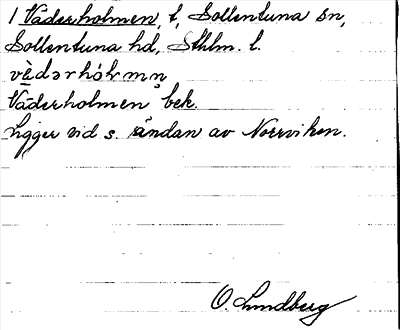 1 Väderholmen, t, Sollentuna sn,
Sollentuna hd, Sthlm. l.
vèdərhólmn̥
Väderholmen bek.
Ligger vid s. ändan av Norrviken.
O. Lundberg